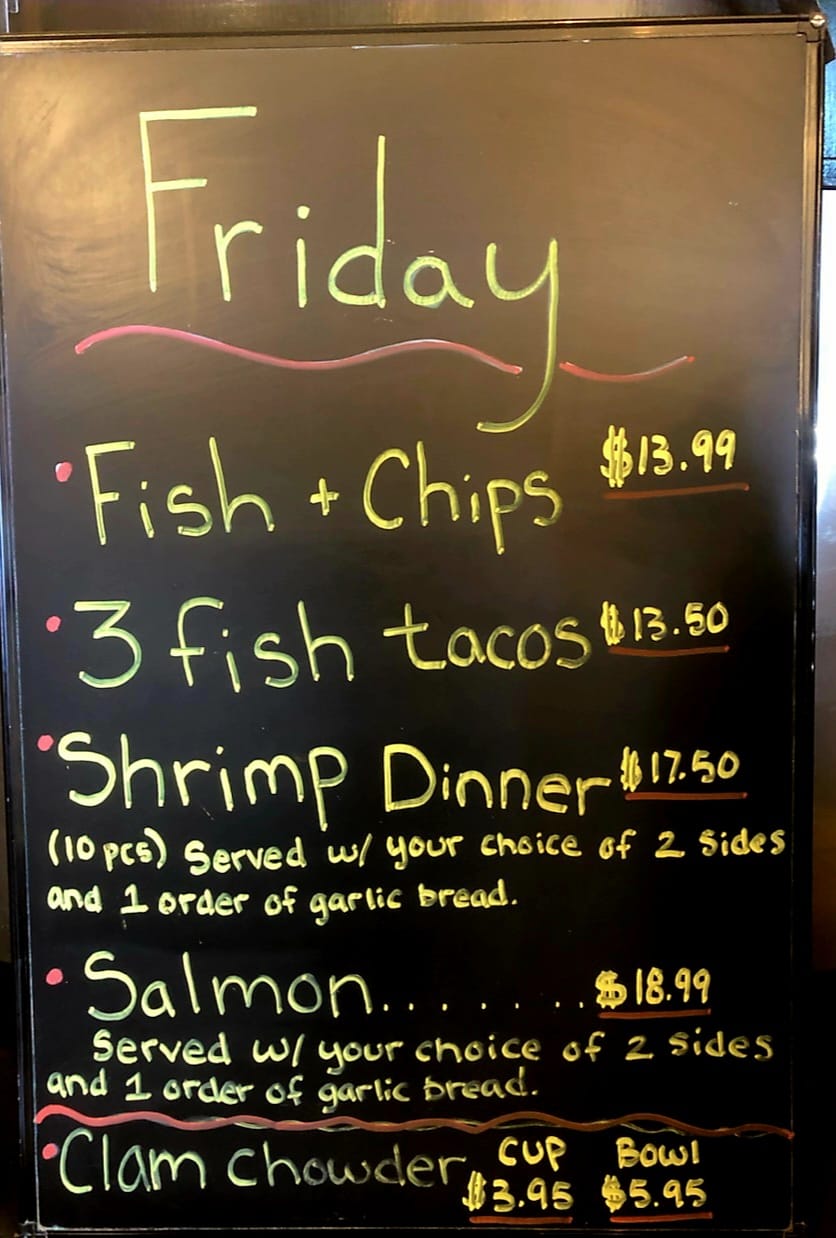 Friday
Fish + Chips $13.99
3 fish tacos $13.50
Shrimp Dinner $17.50
(10 pcs) Served w/ your choice of 2 sides
and 1 order of garlic bread.
Salmon........ $18.99
Served w/ your choice of 2 sides
and 1 order of garlic bread.
Clam chowder CUP Bowl
$3.95 $5.95